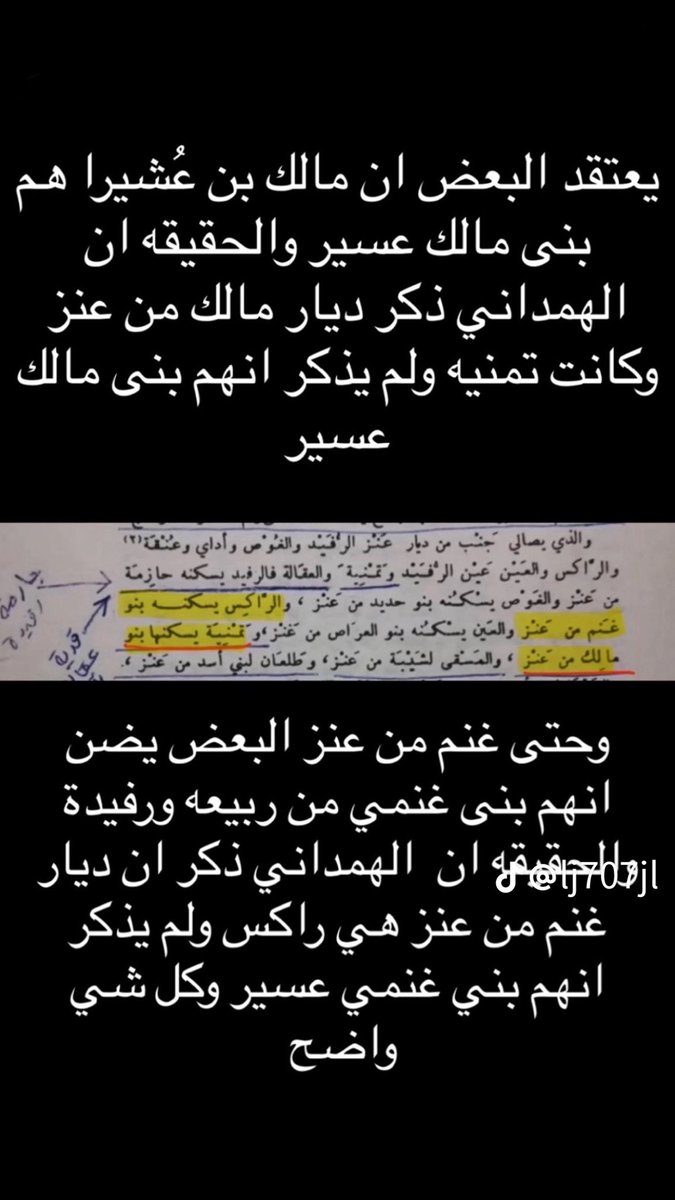 يعتقد البعض ان مالك بن عُشيرا هم
بنى مالك عسير والحقيقه ان
الهمداني ذكر ديار مالك من عنز
وكانت تمنيه ولم يذكر انهم بنى مالك
عسير
والذي يصالي جَنْب من ديار عَنْز الرُّفَيْد والفَوْص وأداي وعَنْقَة (٢)
والرَّاكس والعَيْن عَيْن الرُّفَيْد وتَمْنِيَة والعقالة فالرفيد يسكنه حازمة
من عَنْز والفَوْص يسكنُه بنو حديد من عَنْز ، والرَّاكِس يسكنه بنو
غَنم من عَنز والعين يسكنُه بنو العراص من عَنْز ، وتمْنِيَة يسكنها بنو
مالِك من عَنْز ، والمَسْقى لشَيْبَة من عَنْز ، وطلعَان لبني أسد من عَنْز ،
جارمة
رفيدة
قرية
وحتى غنم من عنز البعض يضن
انهم بنى غنمي من ربيعه ورفيدة
والحقيقه ان الهمداني ذكر ان ديار
@lj707jl
غنم من عنز هي راكس ولم يذكر
انهم بني غنمي عسير وكل شي
واضح